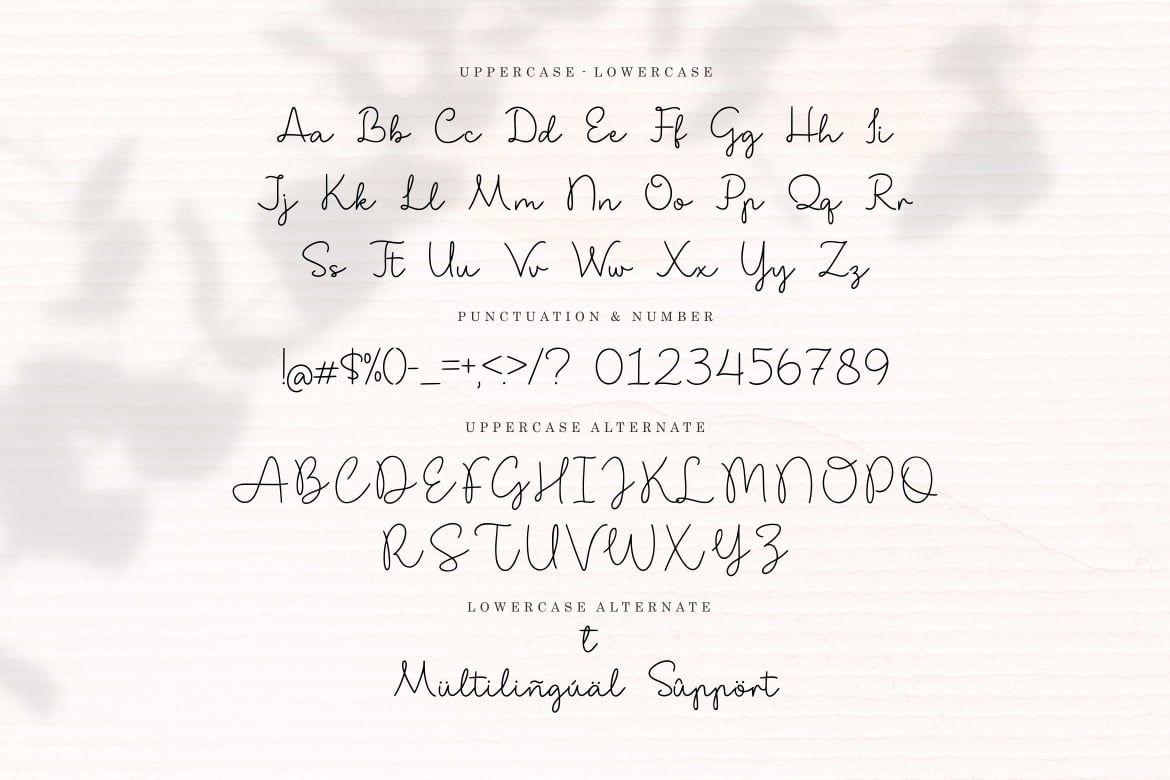 UPPERCASE - LOWERCASE
Aa Bb Cc Dd Ee Ff Gg Hh Ii
Jj Kk Ll Mm Nn Oo Pp Qq Rr
Ss Tt Uu Vv Ww Xx Yy Zz
PUNCTUATION & NUMBER
!@#$%()-_=+,<.>/? 0123456789
UPPERCASE ALTERNATE
ABCDEFGHIJKLMNOPQ
RSTUVWXYZ
LOWERCASE ALTERNATE
t
Mültiliñgúäl Sûppört